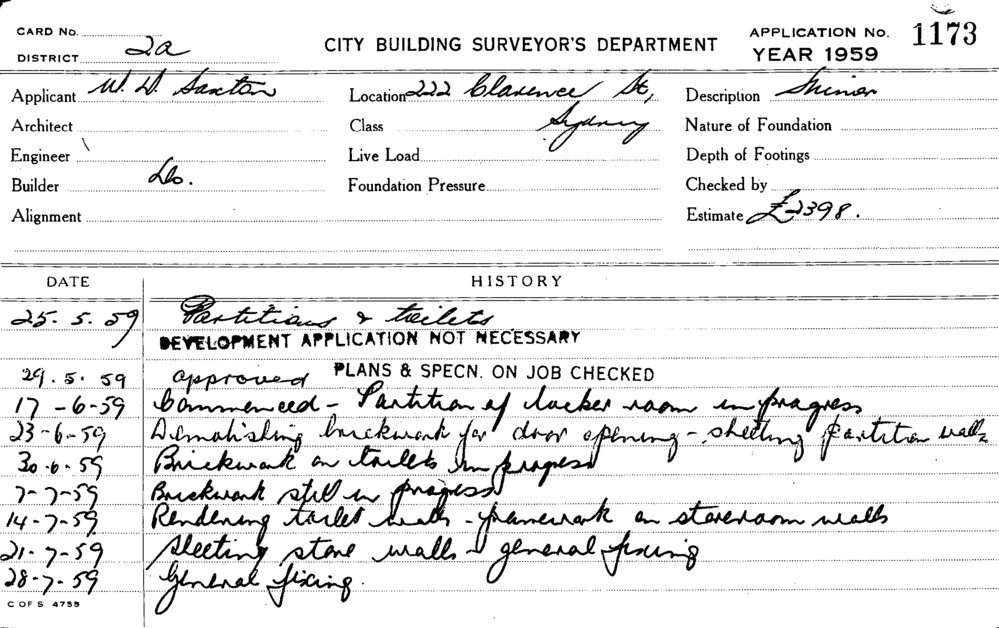 CARD No.
DISTRICT 2a
CITY BUILDING SURVEYOR'S DEPARTMENT
APPLICATION No. 1173
YEAR 1959
Applicant W. D. Saxton
Location 222 Clarence St,
Description Minor
Architect
Class Sydney
Nature of Foundation
Engineer
Live Load
Depth of Footings
Builder Do.
Foundation Pressure
Checked by
Alignment
Estimate £2398.
DATE HISTORY
25. 5. 59 Partitions & toilets
DEVELOPMENT APPLICATION NOT NECESSARY
29. 5. 59 approved PLANS & SPECN. ON JOB CHECKED
17-6-59 Commenced - Partition of locker room in progress
23-6-59 Demolishing brickwork for door opening - sheeting partition walls
30-6-59 Brickwork on toilets in progress
7-7-59 Brickwork still in progress
14-7-59 Rendering toilet walls - framework on storeroom walls
21-7-59 Sheeting store walls - general fixing
28-7-59 General fixing.
C OF S 4755